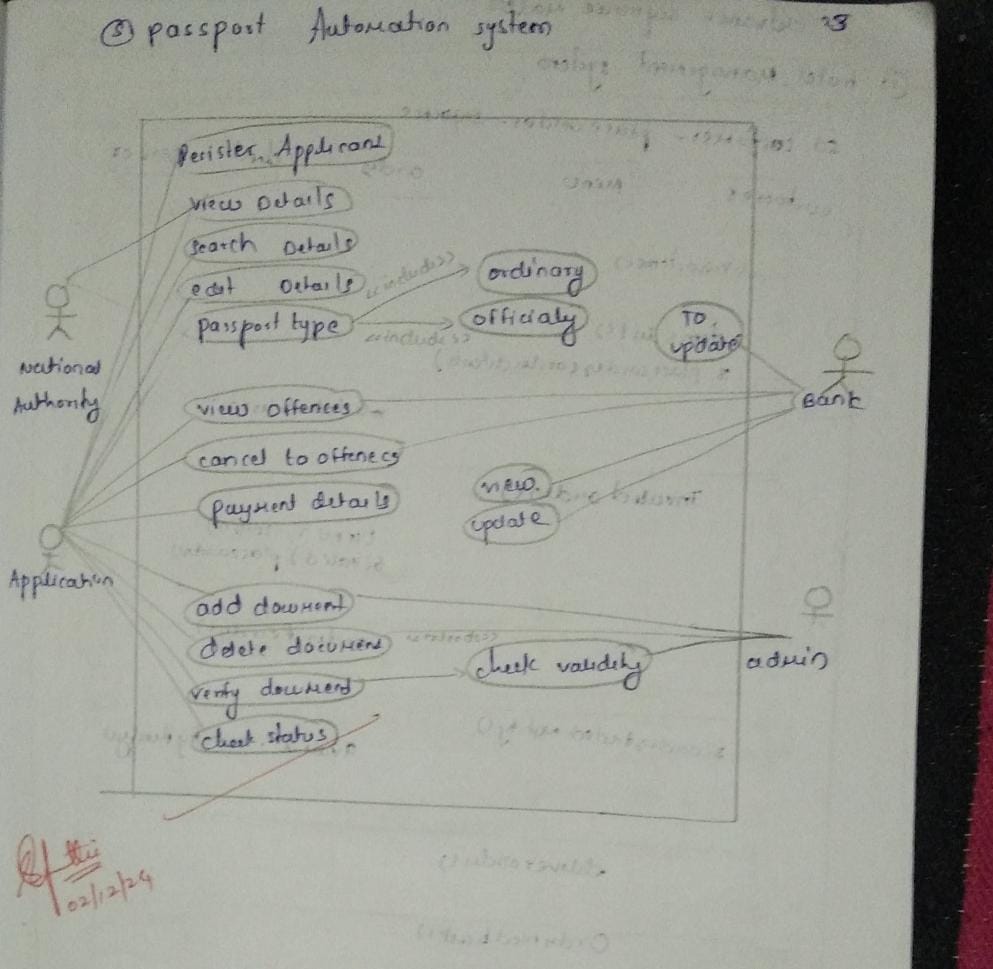 ③ passport Automation system
23
Perister Applicant
view Details
search Details
edit Details
<<includes>>
ordinary
passport type
<<includes>>
officialy
To
update
National
Authority
Bank
view offences
cancel to offences
view.
payment details
update
Application
add document
delete document
check validity
admin
verify document
check status
02/12/24